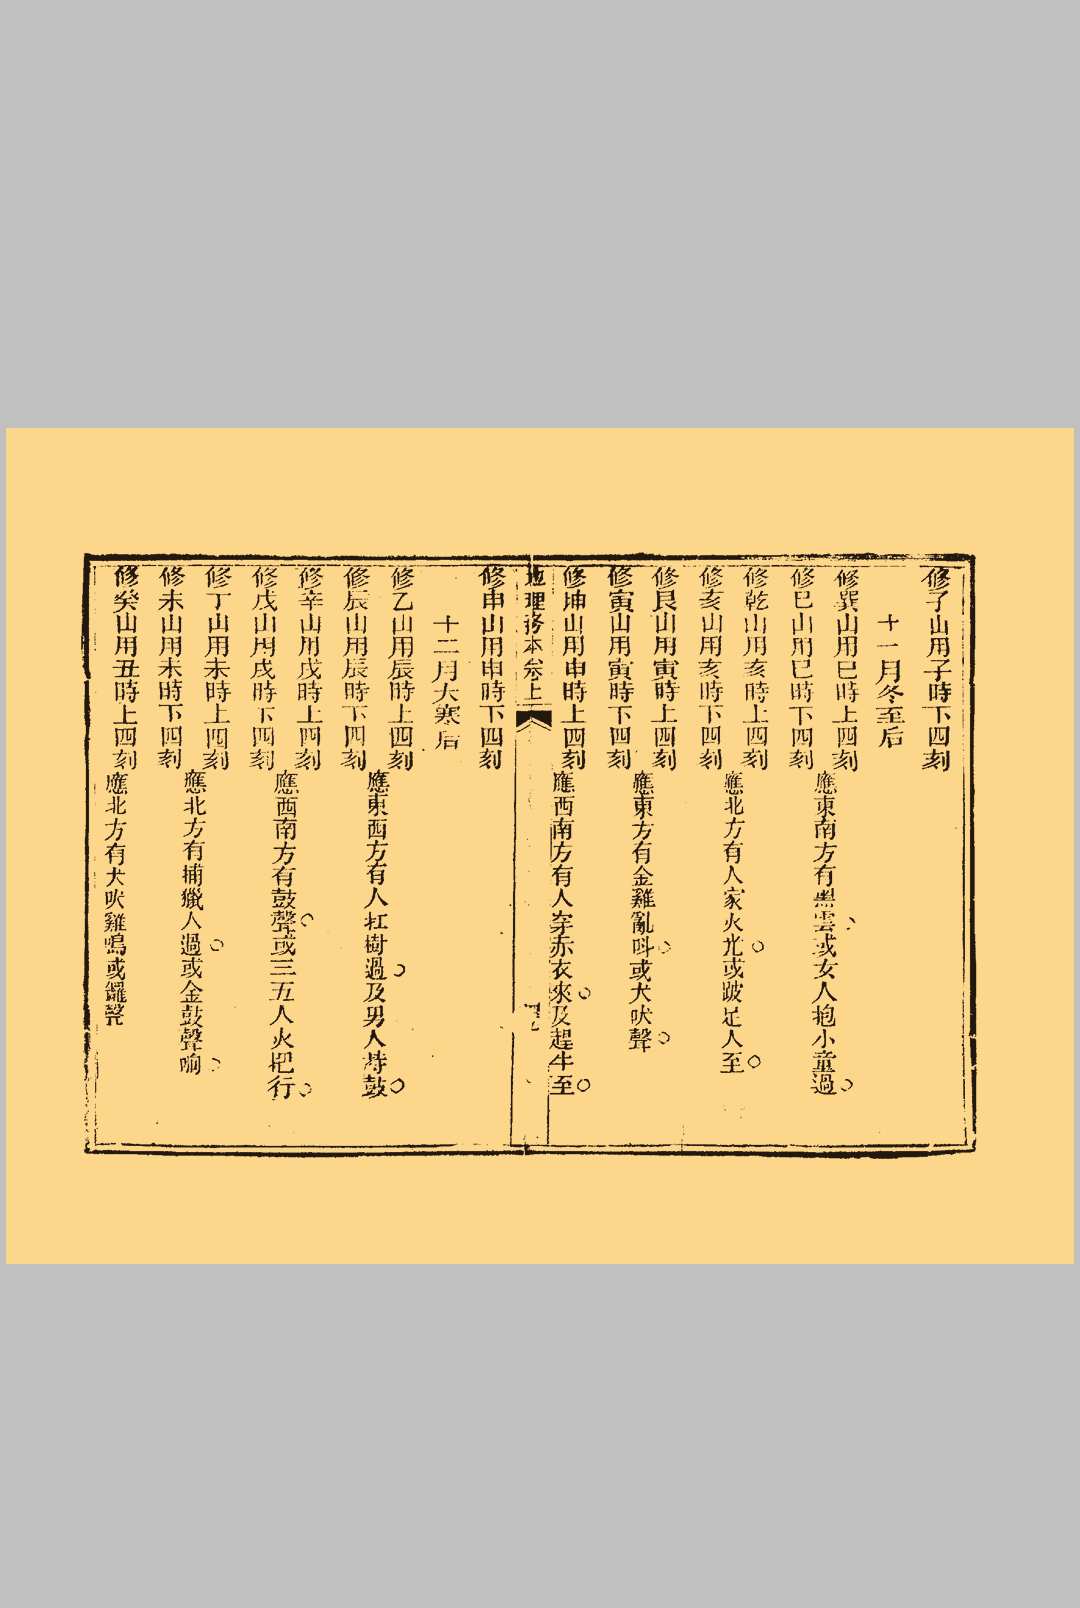 修子山用子時下四刻
十一月冬至后
修巽山用巳時上四刻
應東南方有黑雲或女人抱小童過
修巳山用巳時下四刻
修乾山用亥時上四刻
應北方有人家火光或跛足人至
修亥山用亥時下四刻
修艮山用寅時上四刻
應東方有金雞亂呌或犬吠聲
修寅山用寅時下四刻
修坤山用申時上四刻
應西南方有人穿赤衣來及趕牛至
地理務本卷上
修申山用申時下四刻
十二月大寒后
修乙山用辰時上四刻
應東西方有人扛樹過及男人持鼓
修辰山用辰時下四刻
修辛山用戌時上四刻
應西南方有鼓聲或三五人火把行
修戌山用戌時下四刻
修丁山用未時上四刻
應北方有捕獵人過或金鼓聲响
修未山用未時下四刻
修癸山用丑時上四刻
應北方有犬吠雞鳴或鑼聲